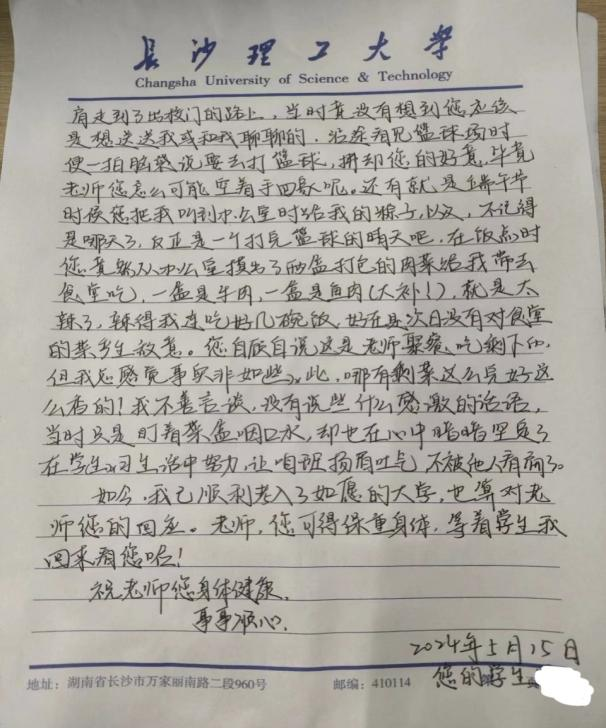 长沙理工大学
Changsha University of Science & Technology
肩走到了出校门的路上，当时竟没有想到您应该
是想送送我或和我聊聊的，沿途看见篮球场时
便一拍脑袋说要去打篮球，拼却您的好意，毕竟
老师您怎么可能空着手回家呢。还有就是端午节
时候您把我叫到办公室时给我的粽子，以及，不记得
是哪天了，反正是一个打完篮球的晴天吧，在饭点时
您竟然从办公室摸出了两盒打包的肉菜给我带去
食堂吃，一盒是牛肉，一盒是鱼肉(大补！)，就是太
辣了，辣得我连吃好几碗饭，好在次日没有对食堂
的菜产生敌意。您自顾自说这是老师聚餐吃剩下的，
但我总感觉事实并非如此，哪有剩菜这么完好这
么香的！我不善言谈，没有说些什么感激的话语，
当时只是盯着菜盒咽口水，却也在心中暗暗坚定了
在学生生活中努力，让咱班扬眉吐气，不被他人看扁了。
如今，我已顺利考入了如愿的大学，也算对老
师您的回应。老师，您可得保重身体，等着学生我
回来看您哈！
祝老师您身体健康，
事事顺心。
2024年5月15日
您的学生
地址：湖南省长沙市万家丽南路二段960号
邮编：410114